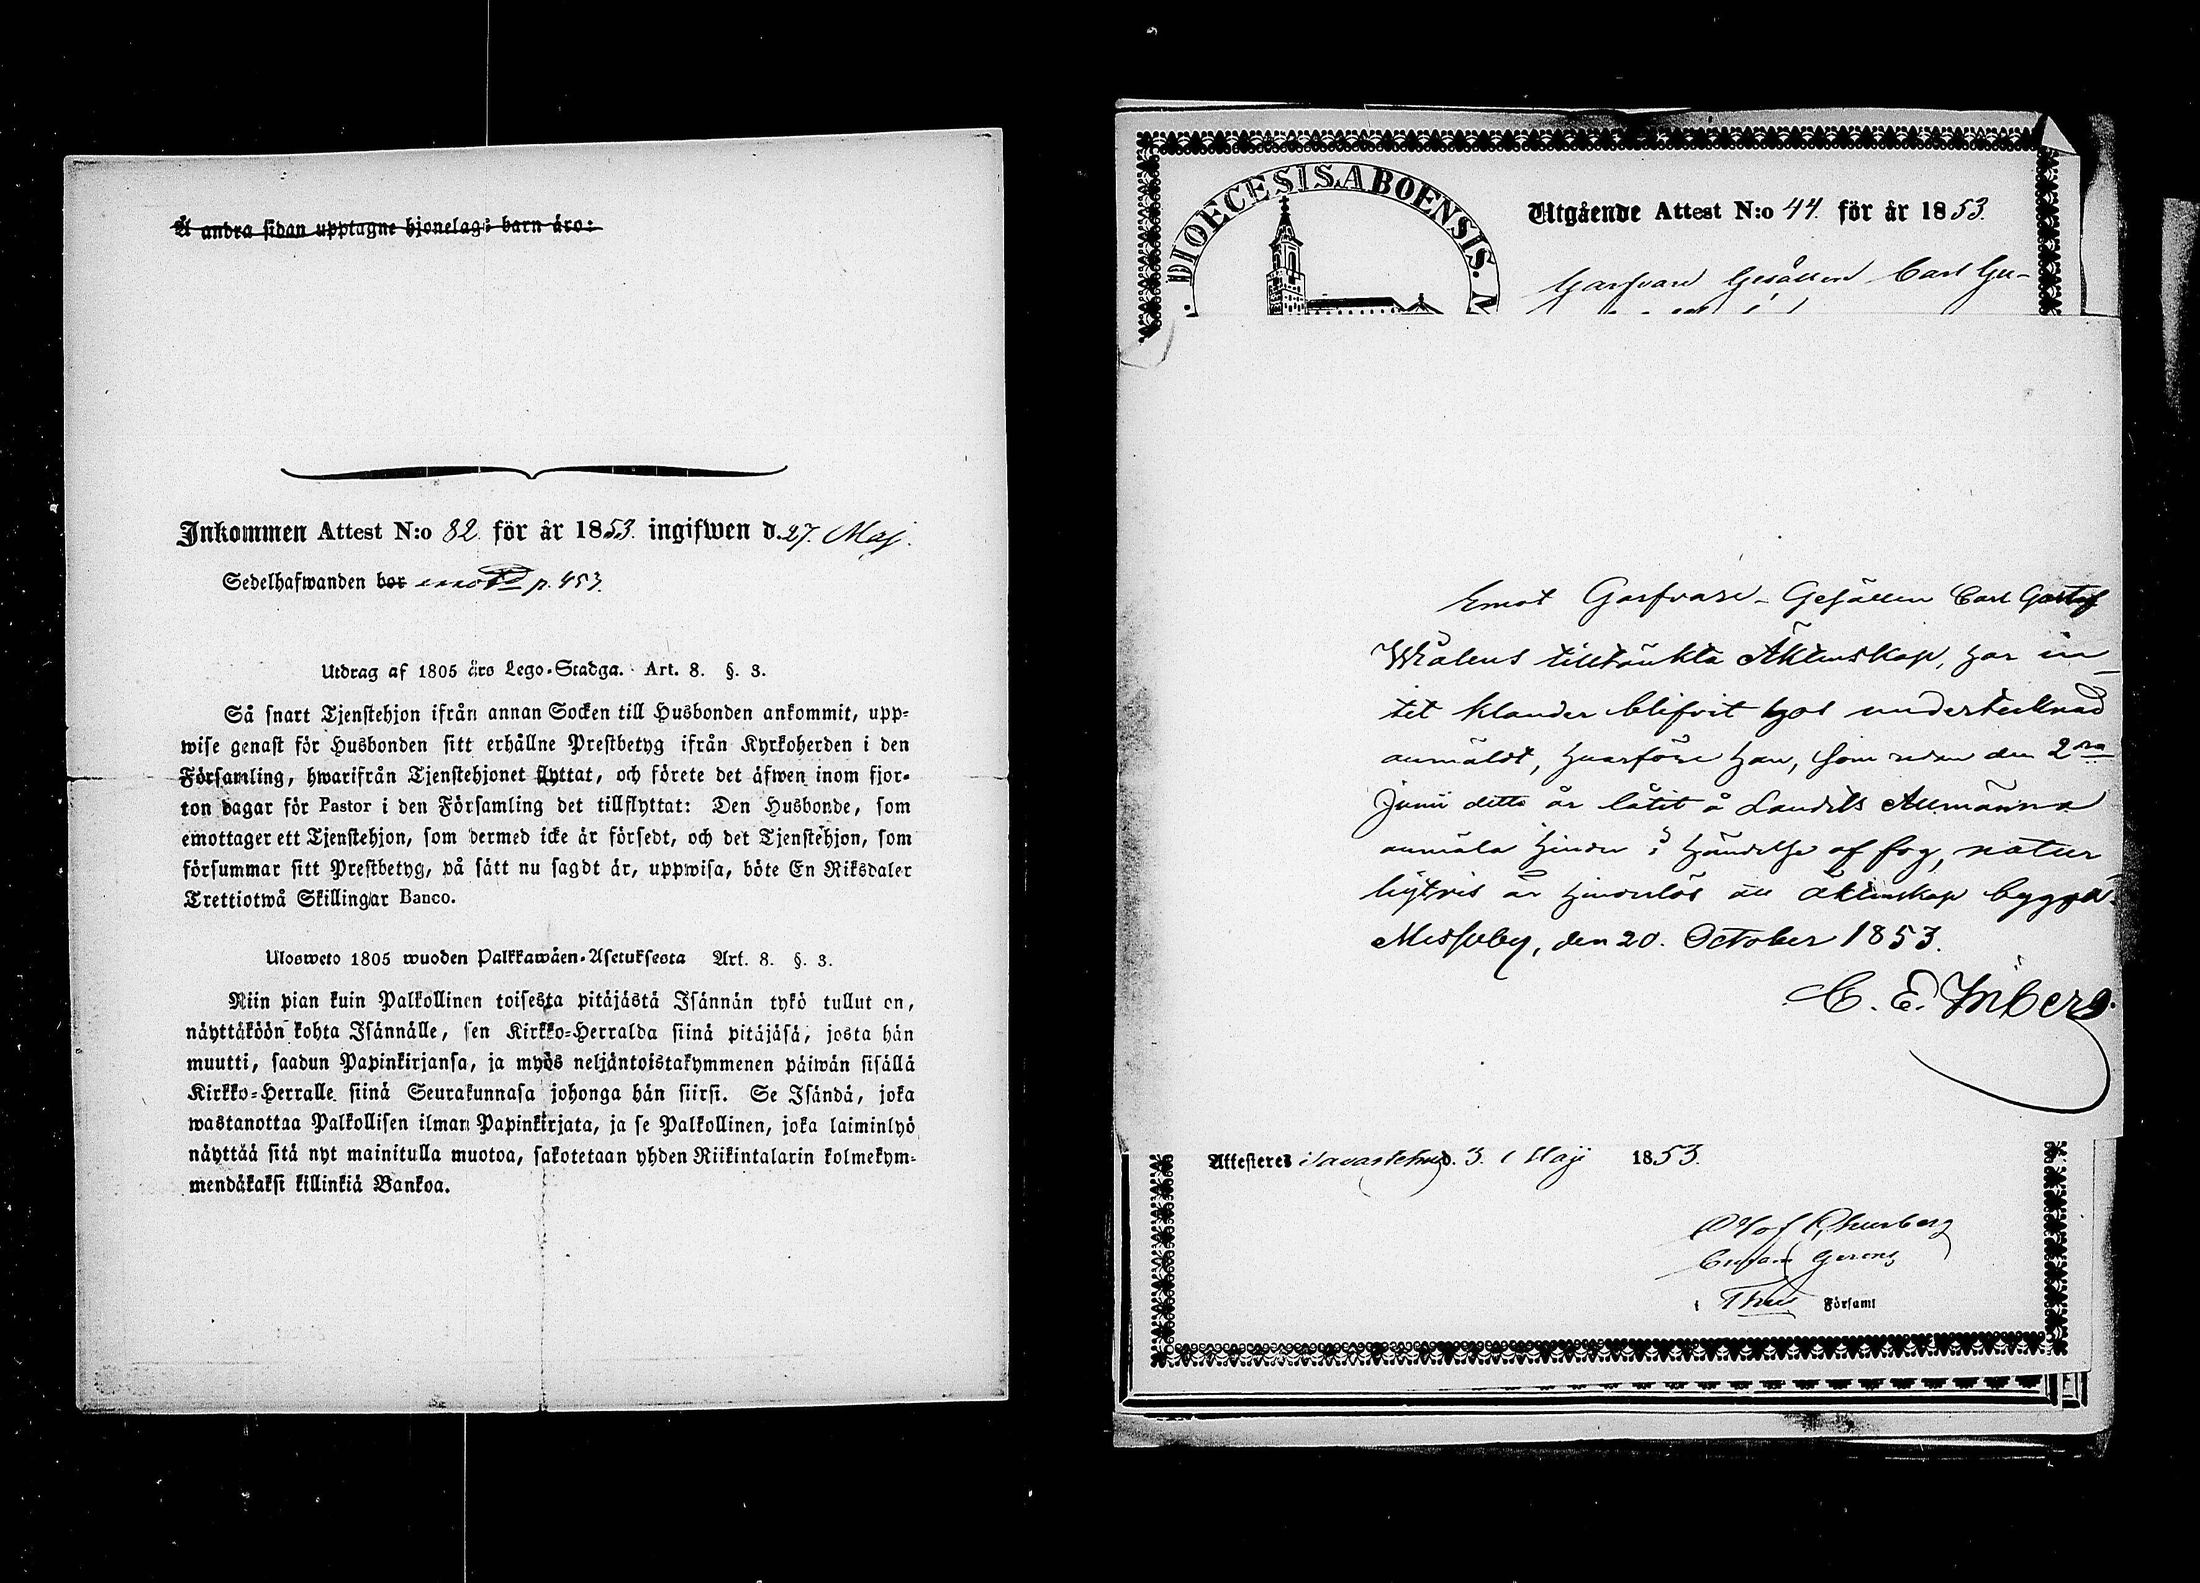 Å andra sidan upptagne hjonelags barn äro:
Inkommen Attest N:o 82. för år 1853. ingifwen d. 27. Maj.
Sedelhafwanden bor emott p. 453.
Utdrag af 1805 års Lego-Stadga. Art. 8. §. 3.
Så snart Tjenstehjon ifrån annan Socken till Husbonden ankommit, upp-
wise genast för Husbonden sitt erhållne Prestbetyg ifrån Kyrkoherden i den
Församling, hwarifrån Tjenstehjonet flyttat, och förete det äfwen inom fjor-
ton dagar för Pastor i den Församling det tillflyttat: Den Husbonde, som
emottager ett Tjenstehjon, som dermed icke är försedt, och det Tjenstehjon, som
försummar sitt Prestbetyg, på sätt nu sagdt är, uppwisa, böte En Riksdaler
Trettiotwå Skillingar Banco.
Ulosweto 1805 wuoden Palkkawäen-Asetuksesta Art. 8. §. 3.
Niin pian kuin Palkollinen toisesta pitäjästä Isännän tykö tullut on,
näyttäköön kohta Isännälle, sen Kirkko-Herralda siinä pitäjäsä, josta hän
muutti, saadun Papinkirjansa, ja myös neljäntoistakymmenen päiwän sisällä
Kirkko-Herralle siinä Seurakunnasa johonga hän siirsi. Se Isändä, joka
wastanottaa Palkollisen ilman Papinkirjata, ja se Palkollinen, joka laiminlyö
näyttää sitä nyt mainitulla muotoa, sakotetaan yhden Riikintalarin kolmekym-
mendäkaksi killinkiä Bankoa.
. DIOECESIS. ABOENSIS. N
Utgående Attest N:o 44. för år 1853.
Garfvare Gesällen Carl Gu-
Emot Garfvare-Gesällen Carl Gustaf
tilltänkta Äktenskap, har in-
tet klander blifvit hos undertecknad
anmäldt, hvarföre han, som redan den 2dra
Junii detta år låtit å Landets Allmänna
anmäla hinder i händelse af fog, natur
ligtvis är hinderlös att äktenskap bygga.
Messuby, den 20. October 1853.
C. E. Inberg.
Attesteres Tavastehus d. 3. Maji 1853.
Olof
i Församl